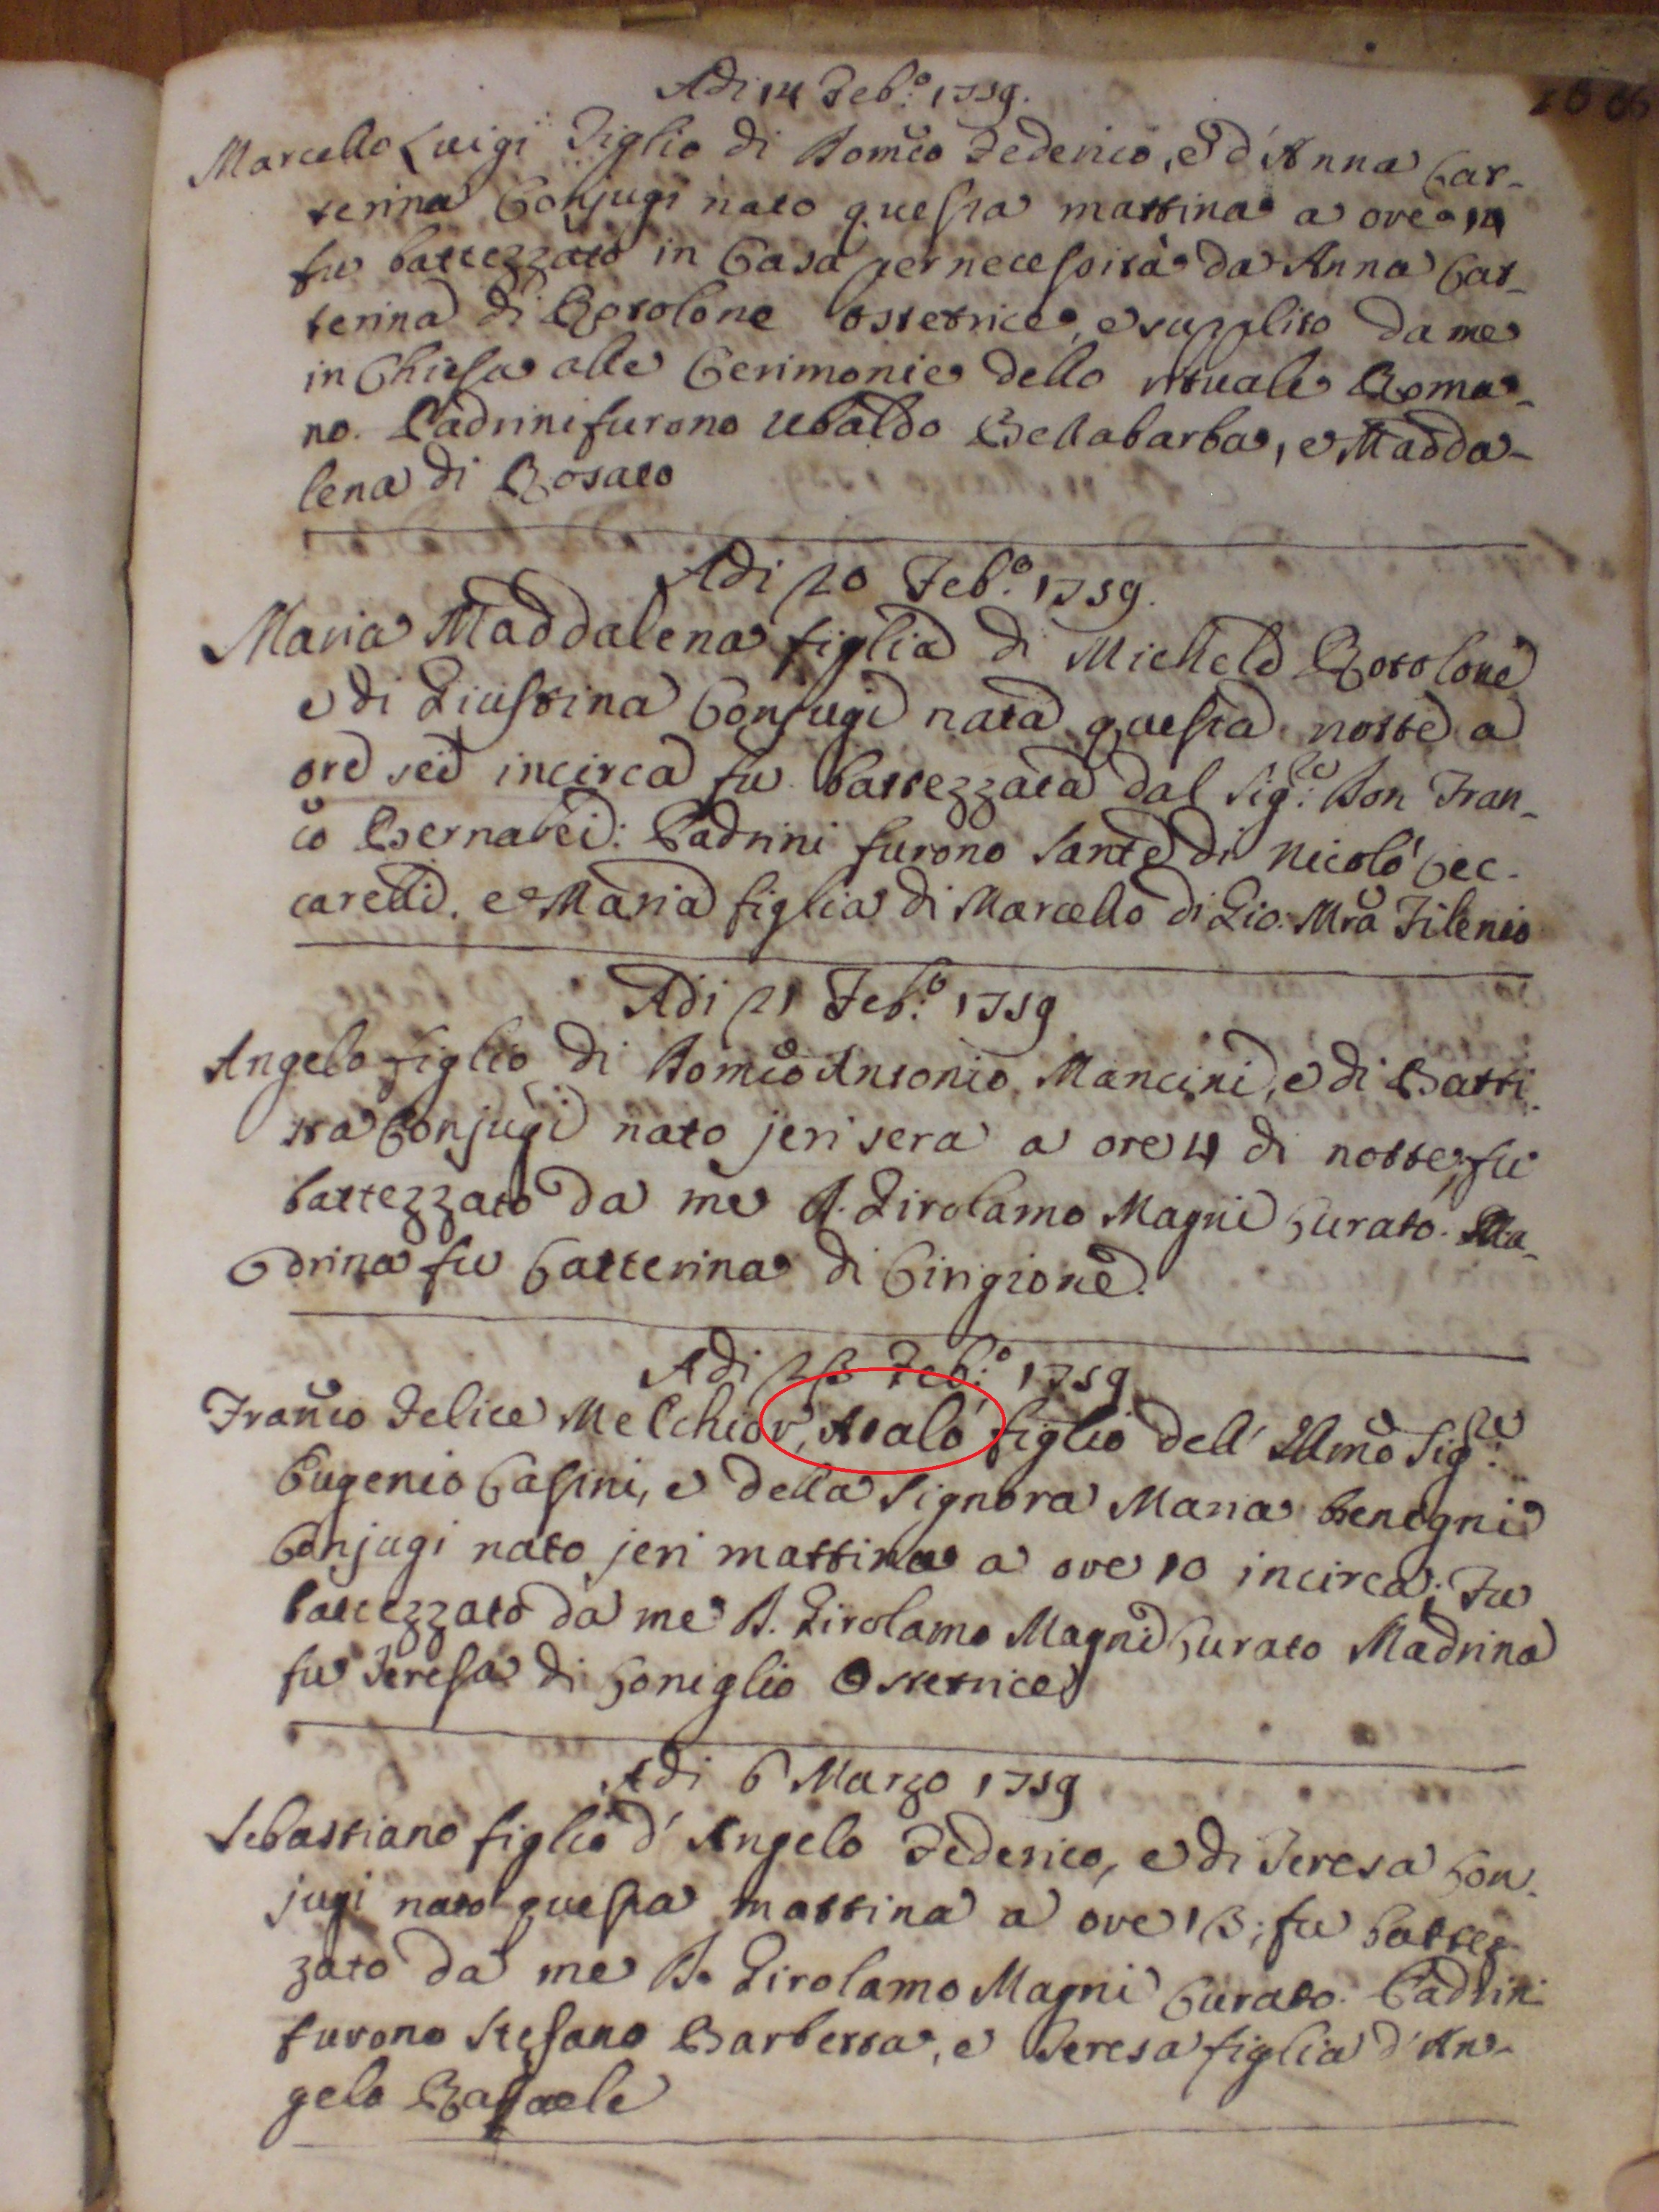 Adi 14 Feb.º 1759.
Marcello Luigi Figlio di Domco Federico, e d'Anna Cat-
terina Conjugi nato questa mattina a ore 14
fu battezzato in Casa per necessità da Anna Cat-
terina di Rotolone Ostetrice, e supplito da me
in Chiesa alle Cerimonie dello rituale Roma-
no. Padrini furono Ubaldo Bellabarba, e Madda-
lena di Rosato
Adi 20 Feb.º 1759.
Maria Maddalena figlia di Michele Rotolone
e di Giustina Conjugi nata questa notte a
ore sei incirca fu battezzata dal Sig.re Don Fran-
co Bernabei: Padrini furono Sante di Nicolò Cec-
carelli, e Maria figlia di Marcello di Gio: Mra Filenio
Adi 21 Feb.º 1759
Angelo figlio di Domco Antonio Mancini, e di Batti
sta Conjugi nato jeri sera a ore 4 di notte, fu
battezzato da me D. Girolamo Magni Curato. Ma-
drina fu Catterina di Cirigione.
Adi 23 Feb.º 1759
Franco Felice Melchior, Atalo figlio dell' Illmo Sig.re
Eugenio Casini, e della Signora Maria Benigni
Conjugi nato jeri mattina a ore 10 incirca; Fu
battezzato da me D. Girolamo Magni Curato Madrina
fu Teresa di Coniglio Ostetrice
Adi 6 Marzo 1759
Sebastiano figlio d' Angelo Federico, e di Teresa Con-
jugi nato questa mattina a ore 13; fu battez-
zato da me D. Girolamo Magni Curato. Padrini
furono Stefano Barbetta, e Teresa figlia d' An-
gelo Raffaele